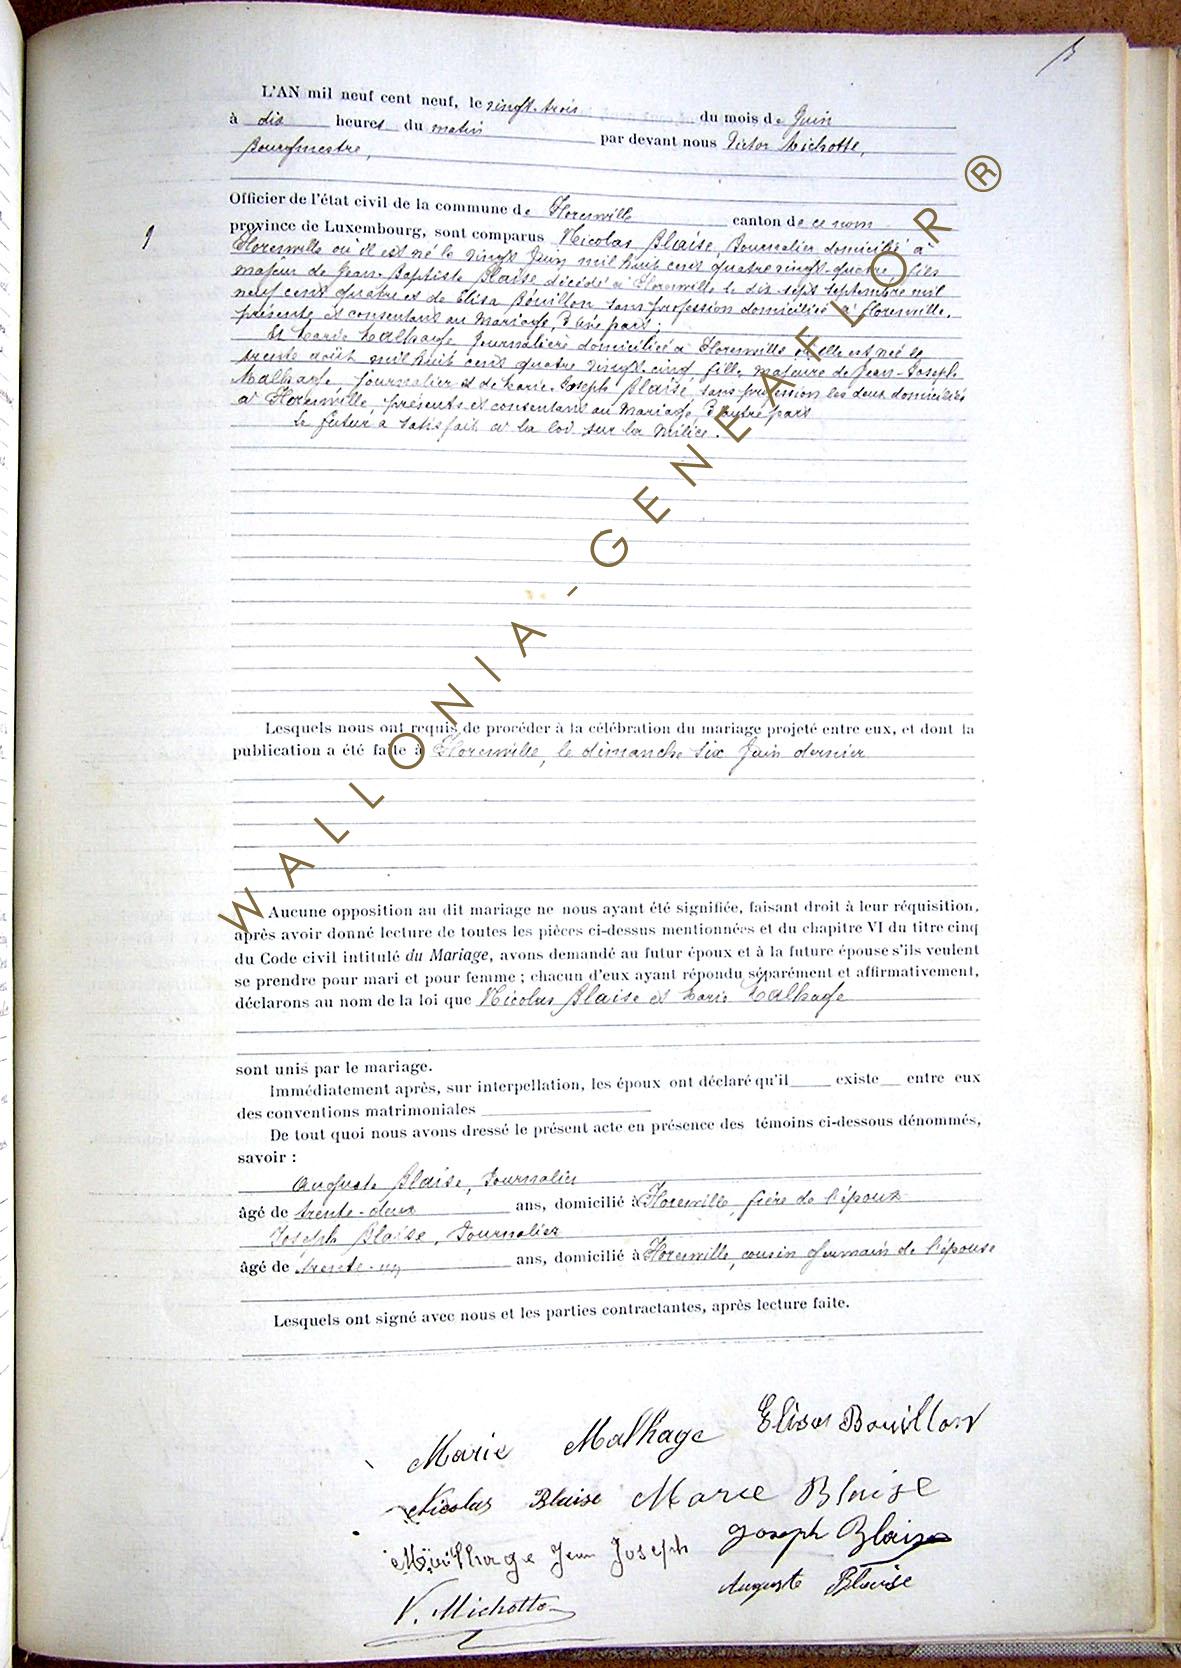 L'AN mil neuf cent neuf, le vingt-trois du mois de Juin
à dix heures du matin par devant nous Victor Michotte,
Bourgmestre,
Officier de l'état civil de la commune de Florenville canton de ce nom
9
province de Luxembourg, sont comparus Nicolas Blaise, Journalier domicilié à
Florenville où il est né le vingt Juin mil huit cent quatre vingt-quatre, fils
majeur de Jean-Baptiste Blaise décédé à Florenville le dix sept septembre mil
neuf cent quatre et de Elisa Bouillon sans profession domiciliée à Florenville,
présente et consentant au Mariage, d'une part;
Et Marie Malhage Journalière domiciliée à Florenville où elle est née le
trente août mil huit cent quatre vingt-cinq, fille majeure de Jean-Joseph
Malhage, journalier et de Marie-Joseph Blaise, sans profession les deux domiciliés
à Florenville, présents et consentant au Mariage, d'autre part
Le futur a satisfait à la loi sur la Milice.
Lesquels nous ont requis de procéder à la célébration du mariage projeté entre eux, et dont la
publication a été faite à Florenville, le dimanche six Juin dernier
Aucune opposition au dit mariage ne nous ayant été signifiée, faisant droit à leur réquisition,
après avoir donné lecture de toutes les pièces ci-dessus mentionnées et du chapitre VI du titre cinq
du Code civil intitulé du Mariage, avons demandé au futur époux et à la future épouse s'ils veulent
se prendre pour mari et pour femme ; chacun d'eux ayant répondu séparément et affirmativement,
déclarons au nom de la loi que Nicolas Blaise et Marie Malhage
sont unis par le mariage.
Immédiatement après, sur interpellation, les époux ont déclaré qu'il existe entre eux
des conventions matrimoniales
De tout quoi nous avons dressé le présent acte en présence des témoins ci-dessous dénommés,
savoir :
Auguste Blaise, Journalier
âgé de trente-deux ans, domicilié à Florenville, frère de l'époux
Joseph Blaise, Journalier
âgé de trente-un ans, domicilié à Florenville, cousin germain de l'épouse
Lesquels ont signé avec nous et les parties contractantes, après lecture faite.
Marie Malhage Elisa Bouillon
Nicolas Blaise Marie Blaise
Malhage Jean Joseph Joseph Blaise
V. Michotte Auguste Blaise
WALLONIA-GENEAFLOR ®